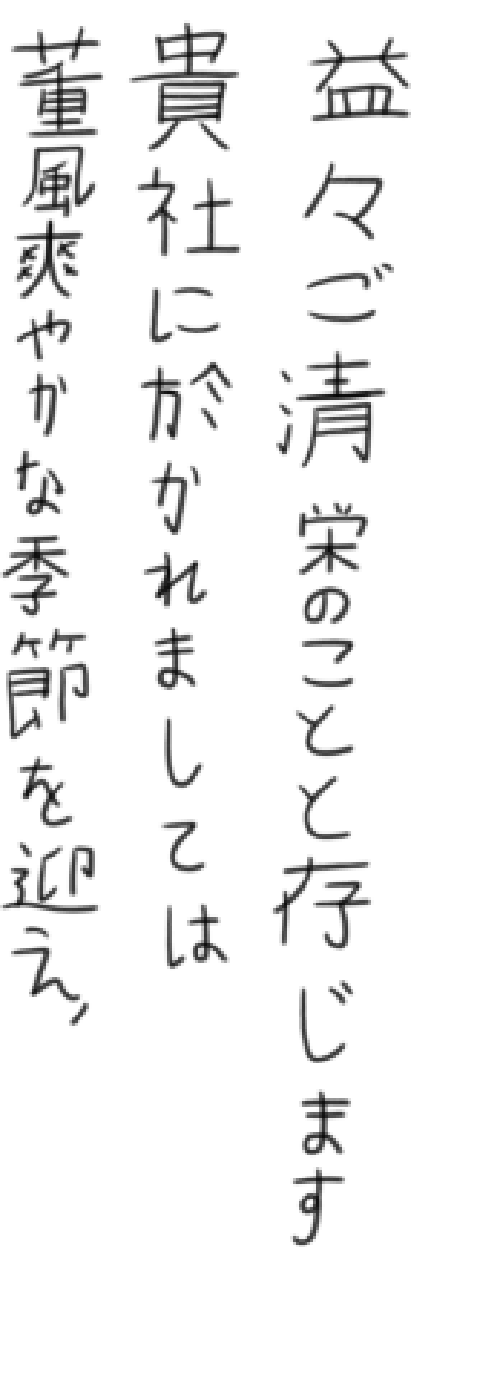 董風爽やかな季節を迎え、
貴社に於かれましては
益々ご清栄のことと存じます